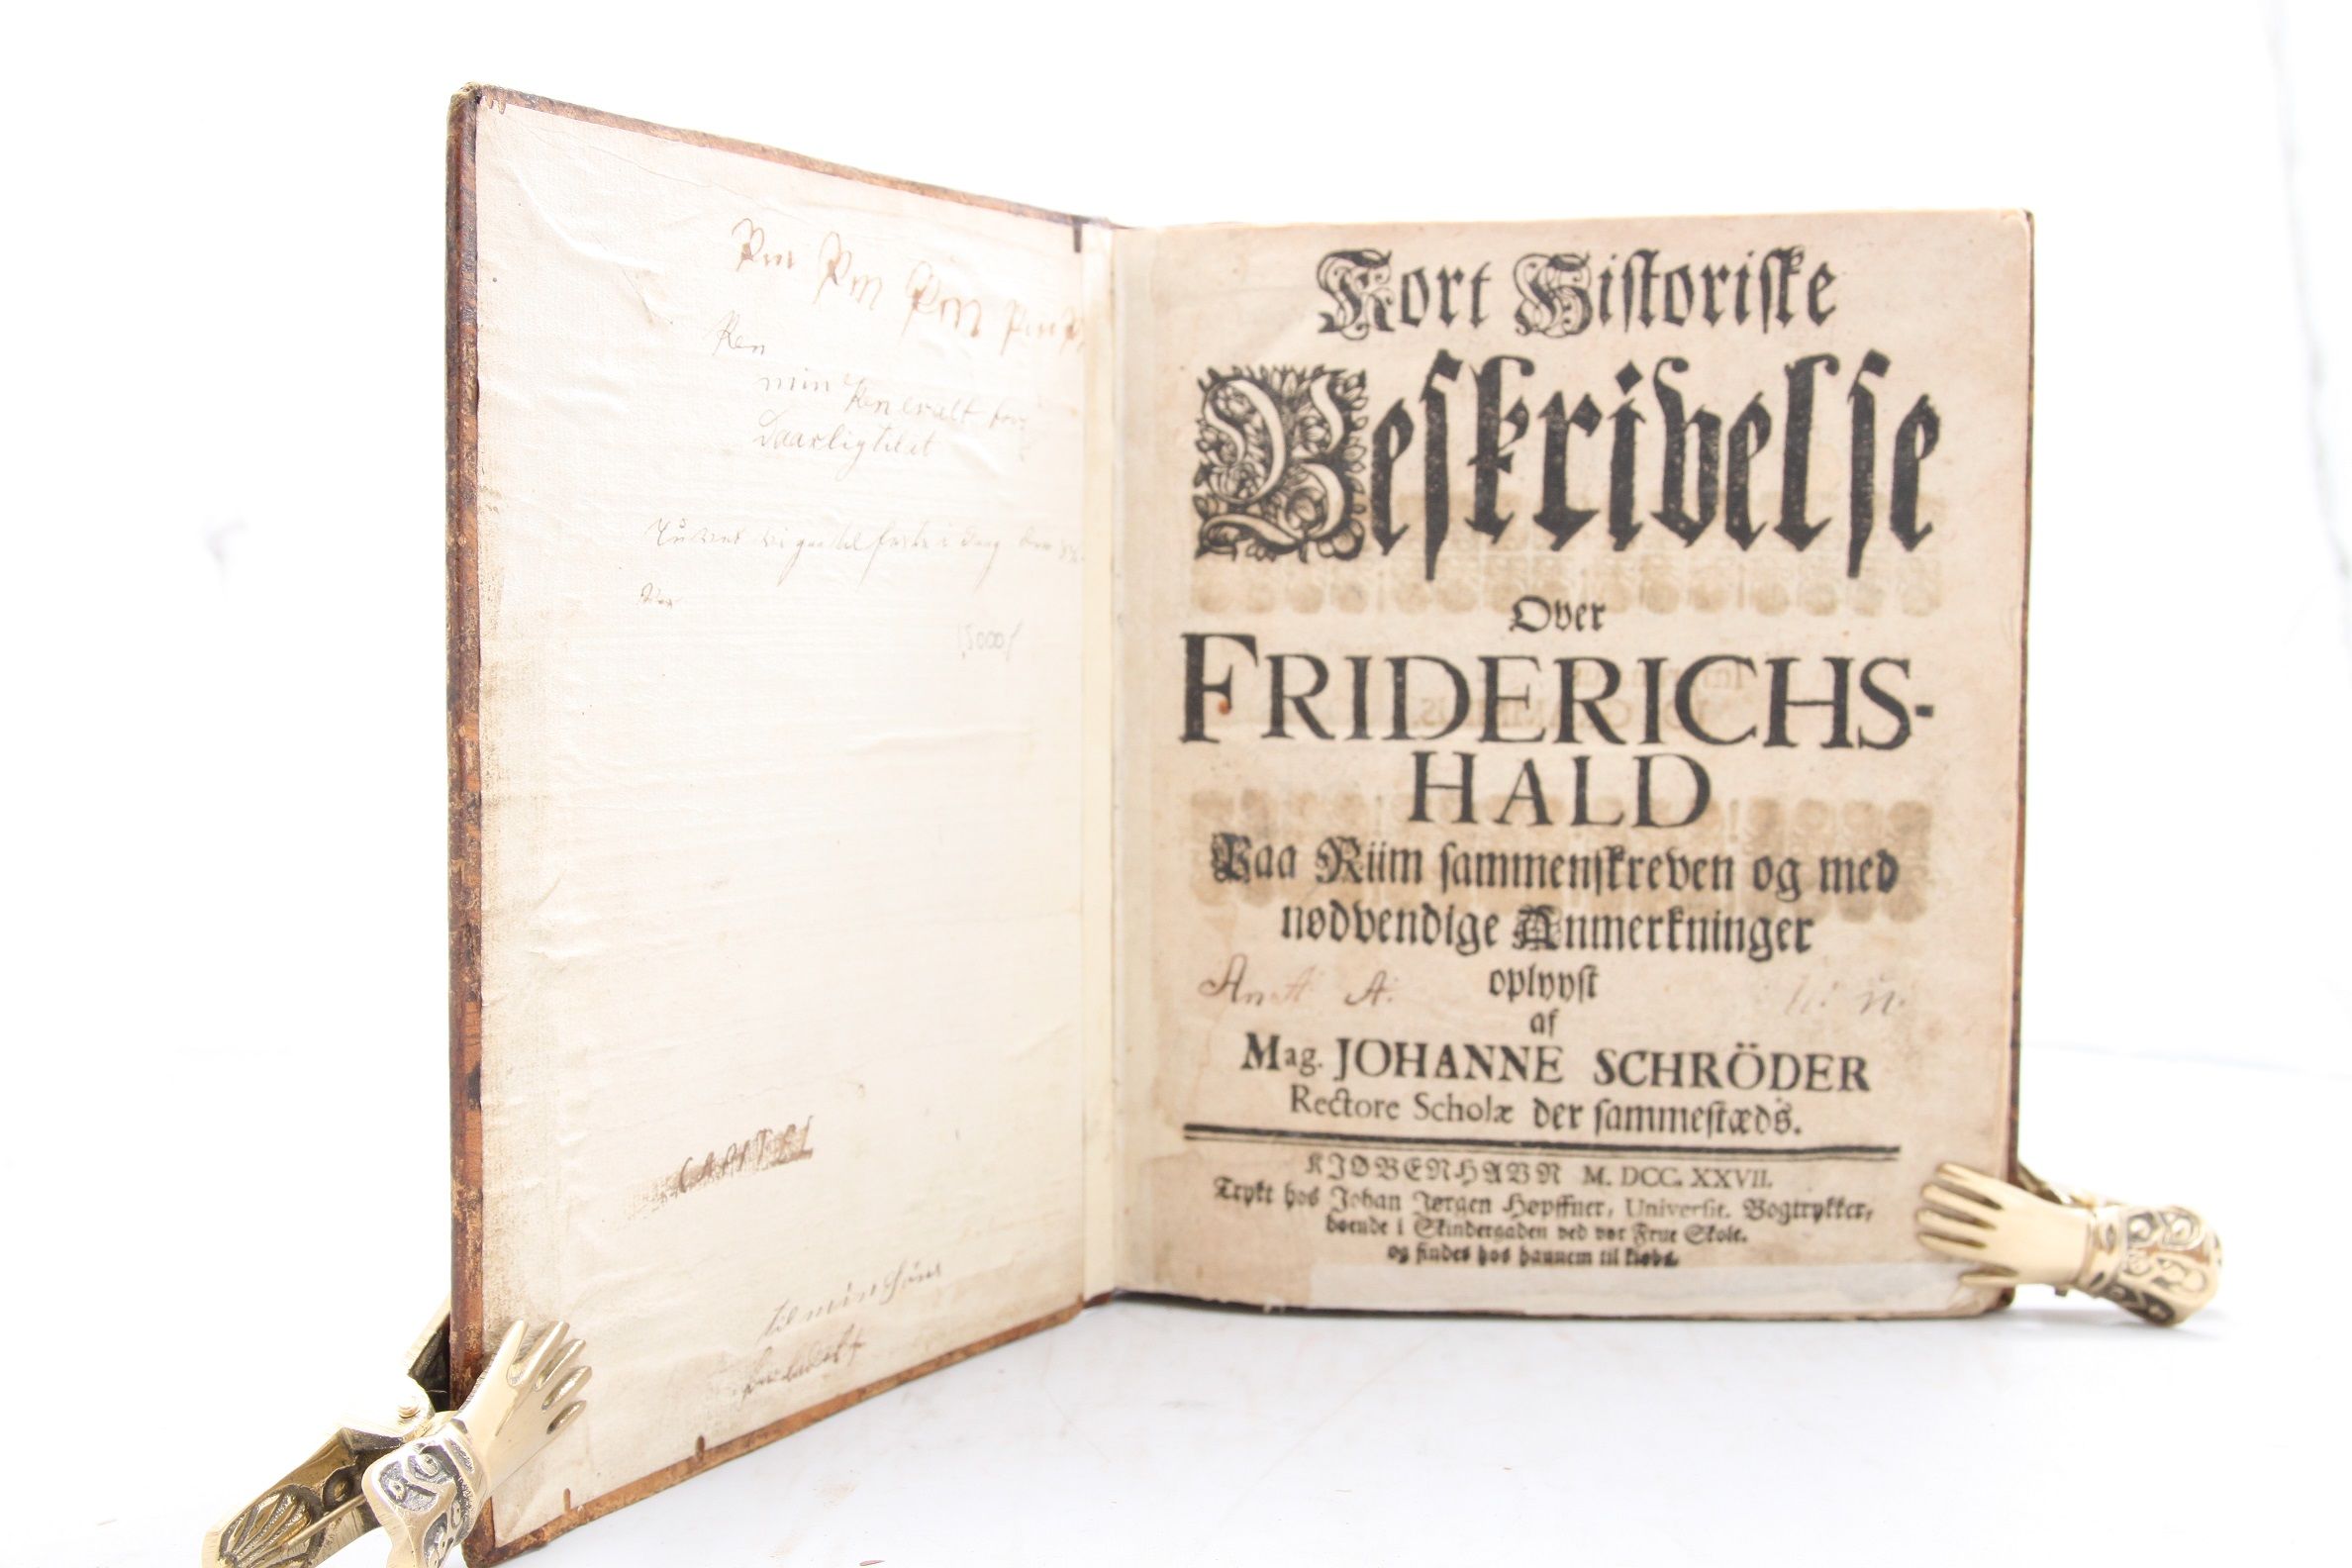 Pen Pen Pen Pen P
Pen
min Pen
Daarlighed
15000
CAPITEL
til min
Kort Historiske
Beskrivelse
Over
FRIDERICHS-
HALD
Paa Riim sammenskreven og med
nødvendige Anmerkninger
oplyyst
A:
af
Mag. JOHANNE SCHRÖDER
Rectore Scholæ der sammestæds.
KIØBENHAVN M. DCC. XXVII.
Trykt hos Johan Jørgen Høpffner, Universit. Bogtrykker,
boende i Skindergaden ved vor Frue Skole.
og findes hos hannem til kiøbs.